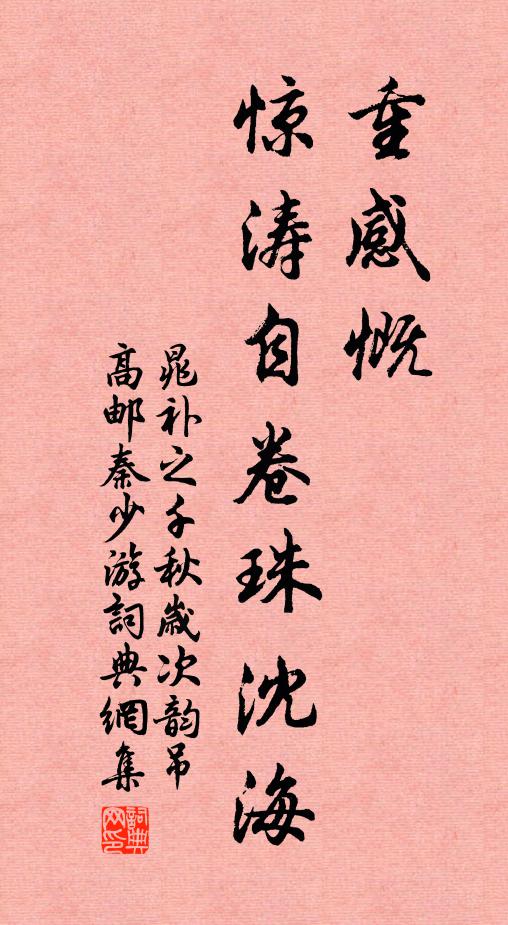 重感慨
惊涛自卷珠沈海
晁补之千秋歳次韵吊
高邮秦少游詞典網集
詞典网印